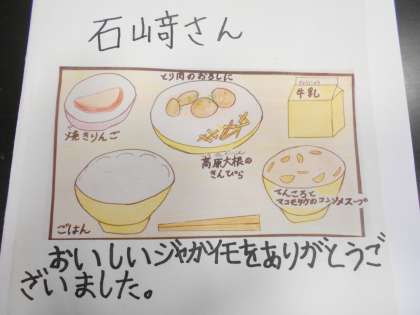 石﨑さん
とり肉のおろしに
牛乳
焼きりんご
高原大根の
きんぴら
ごはん
てんころと
マコモダケのコンソメスープ
おいしいジャガイモをありがとうご
ざいました。